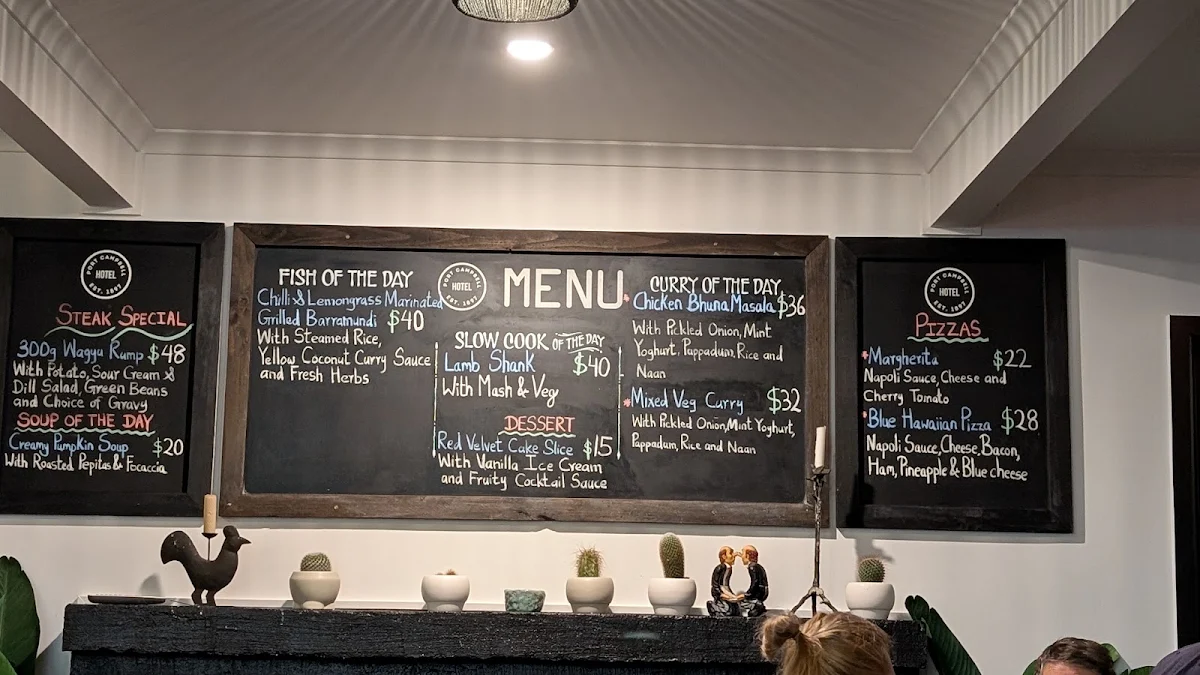 PORT CAMPBELL
HOTEL
EST. 1897
STEAK SPECIAL
300g Wagyu Rump $48
With Potato, Sour Cream &
Dill Salad, Green Beans
and Choice of Gravy
SOUP OF THE DAY
Creamy Pumpkin Soup $20
With Roasted Pepitas & Focaccia
FISH OF THE DAY
Chilli & Lemongrass Marinated
Grilled Barramundi $40
With Steamed Rice,
Yellow Coconut Curry Sauce
and Fresh Herbs
PORT CAMPBELL
HOTEL
EST. 1897
MENU
SLOW COOK OF THE DAY
Lamb Shank $40
With Mash & Veg
DESSERT
Red Velvet Cake Slice $15
With Vanilla Ice Cream
and Fruity Cocktail Sauce
CURRY OF THE DAY
*Chicken Bhuna Masala $36
With Pickled Onion, Mint
Yoghurt, Pappadum, Rice and
Naan
*Mixed Veg Curry $32
With Pickled Onion, Mint Yoghurt,
Pappadum, Rice and Naan
PORT CAMPBELL
HOTEL
EST. 1897
PIZZAS
*Margherita $22
Napoli Sauce, Cheese and
Cherry Tomato
*Blue Hawaiian Pizza $28
Napoli Sauce, Cheese, Bacon,
Ham, Pineapple & Blue cheese